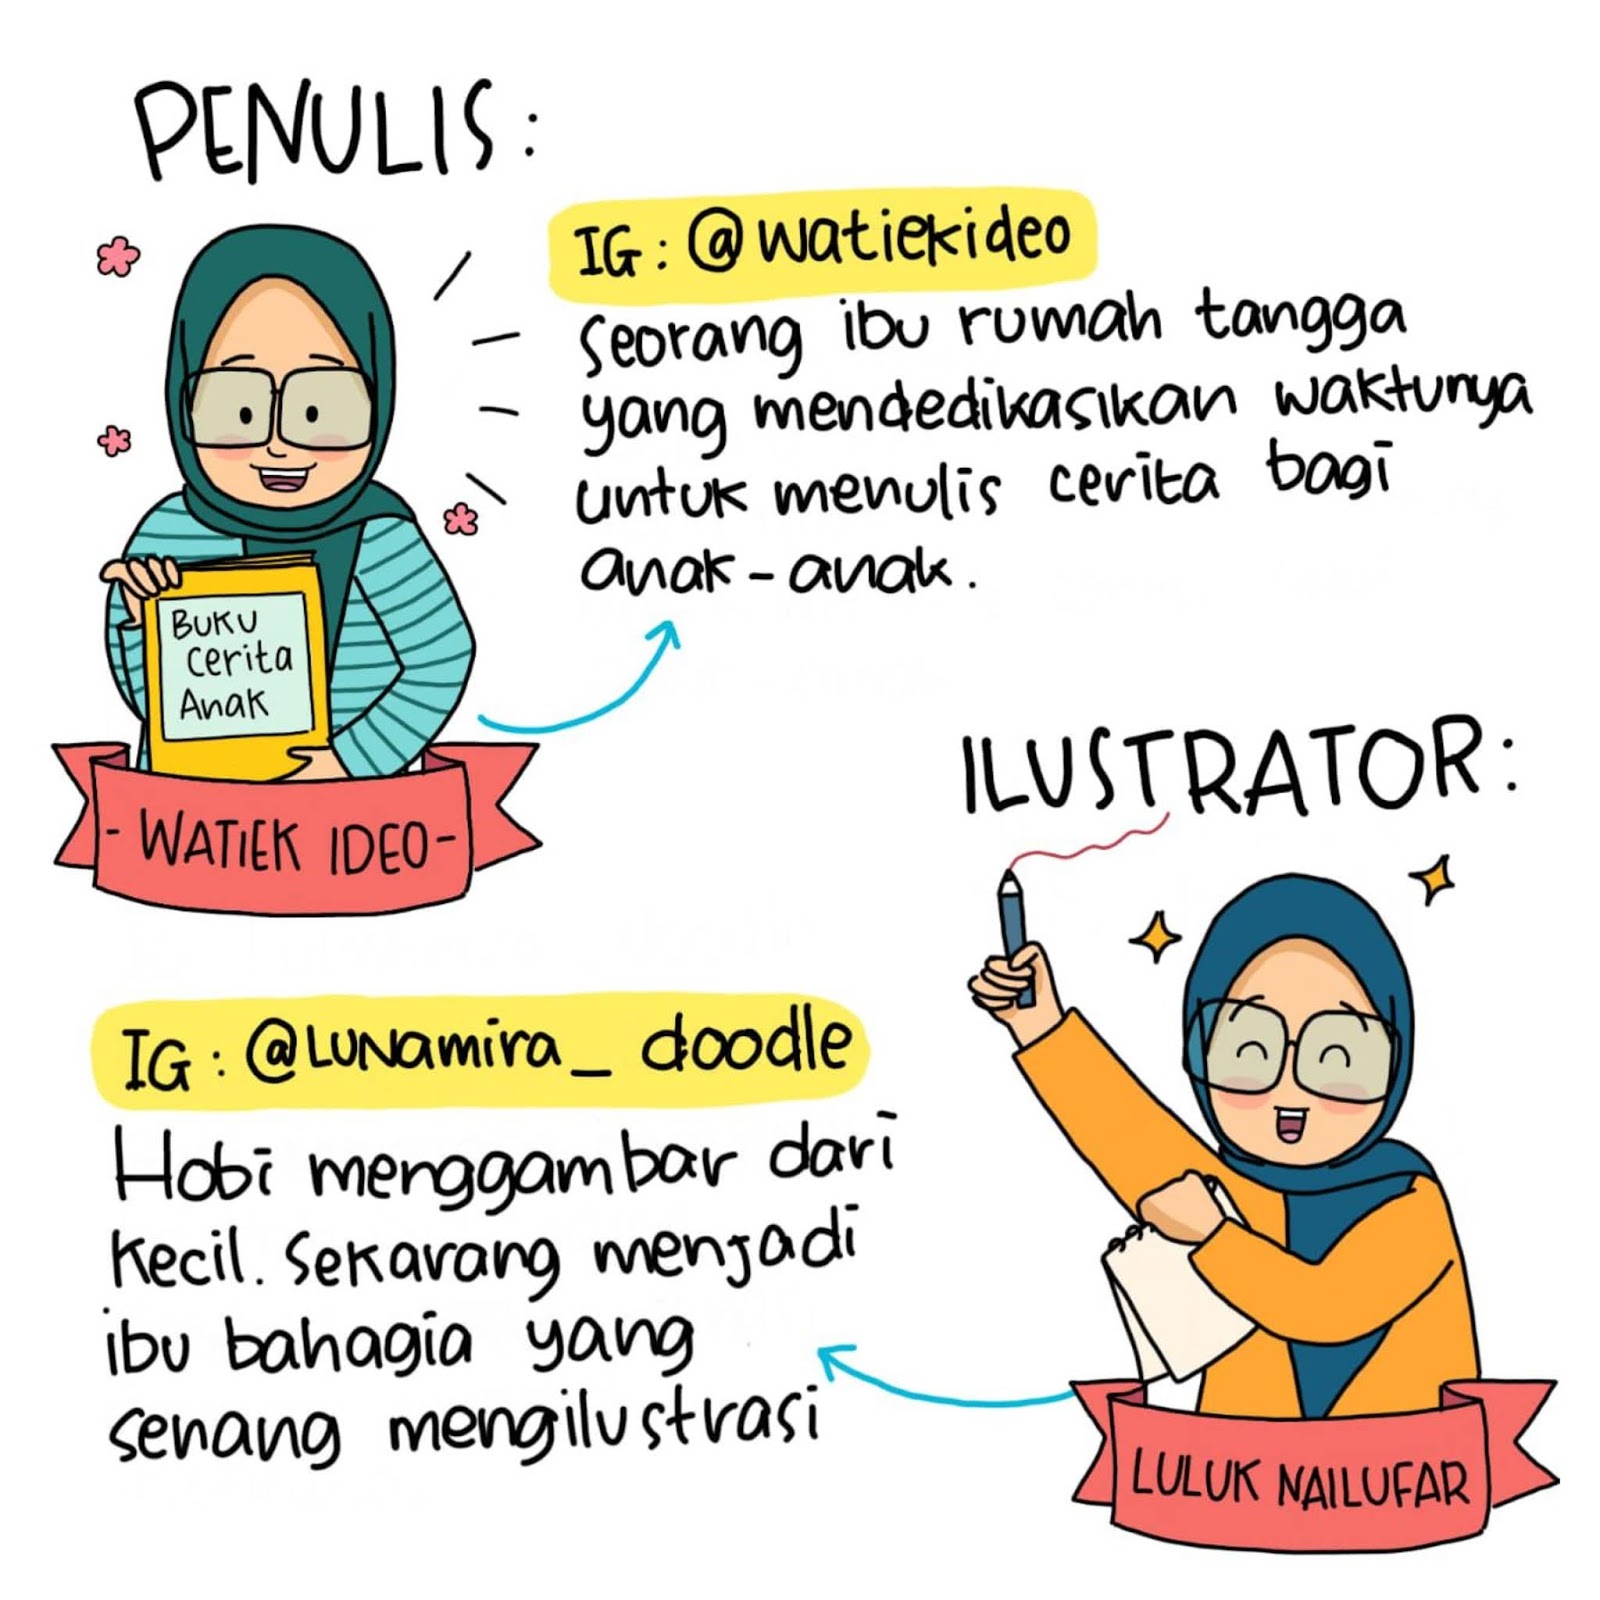 PENULIS:
IG: @watiekideo
Seorang ibu rumah tangga
yang mendedikasikan waktunya
untuk menulis cerita bagi
anak-anak.
Buku
cerita
Anak
- WATIEK IDEO -
ILUSTRATOR:
IG: @LUNamira_doodle
Hobi menggambar dari
kecil. Sekarang menjadi
ibu bahagia yang
senang mengilustrasi
LULUK NAILUFAR